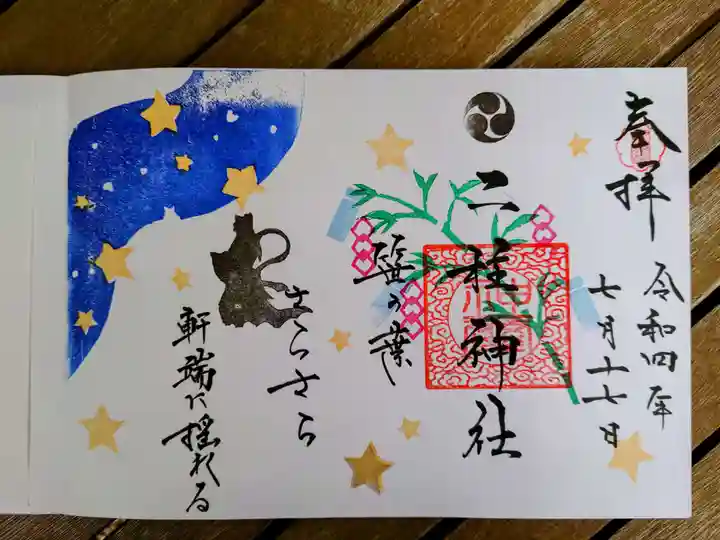 奉拝
令和四年
七月十七日
二柱神社
笹の葉
さらさら
軒端に揺れる